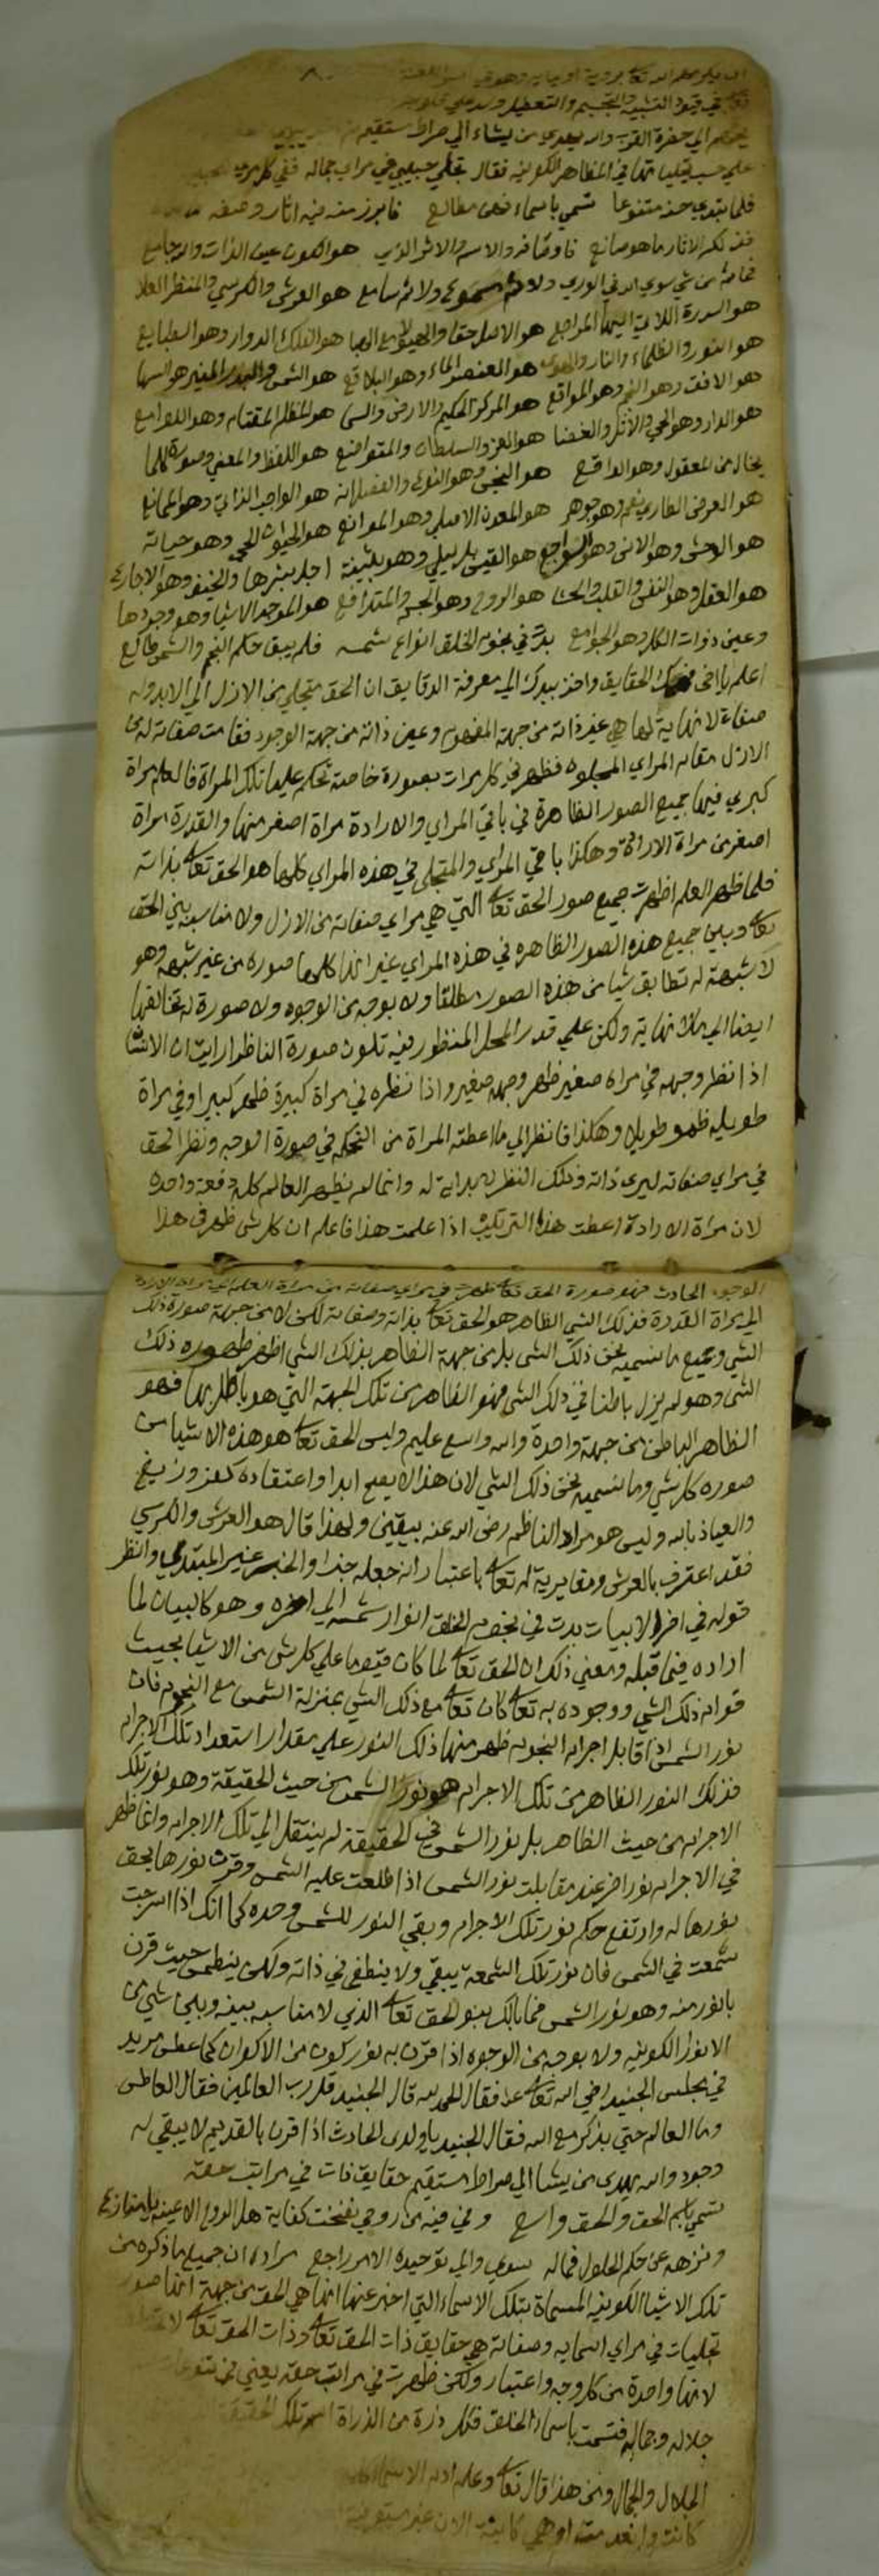 تعالى في قيود التشبيه والتجسيم والتعطيل
الي حضرة القدس والله يهدي من يشاء الي صراط مستقيم
علي حسب تجلياتها في المظاهر الكونيه فقال تجلي حبيبي في مراي جماله ففي كل مرئ
فلما تبدي حسنه متنوعا تسمي باسماء فهن مطالع فابرز منه فيه اثار وصفه
فذلكم الاثار ما هو صانع فاوصافه والاسم والاثر الذي هو الكون عين الذات والله جامع
فما ثم من شي سوي الله في الوري ولا ثم مسموع ولا ثم سامع هو العرش والكرسي والمنظر العلا
هو السدرة اللاتي اليها المراجع هو الاصل حقا والهيولا مع الهبا هو الفلك الدوار وهو الطبايع
هو النور والظلماء والنار والهوي هو العنصر الماء وهو البلاقع هو الشمس والبدر المنير هو السها
هو الافق وهو النجم وهو المواقع هو المركز الحكيم والارض والسما هو المظلم المقتام وهو اللوامع
هو الدار وهو الحي والاثل والغضا هو العز والسلطان والمتواضع هو اللفظ والمعني وصورة كلما
يخال من المعقول وهو الواقع هو الجنس وهو النوع والفصل انه هو الواجب الذاتي وهو الممانع
هو العرض الطاري نعم وهو جوهر هو المعدن الاصلي وهو الموانع هو الحيوان الحي وهو حياته
هو الوحش وهو الانس وهو السواجع هو القيس بل ليلي وهو بثينة اجل بشرها والخيف وهو الاجارع
هو العقل وهو النفس والقلب والحشا هو الروح وهو الجسم والمتدافع هو الموجد الاشيا وهو وجودها
وعين ذوات الكل وهو الجوامع بدت في نجوم الخلق انوار شمسه فلم يبق حكم النجم والشمس طالع
اعلم يا اخي الحقايق واخذ بيدك الي معرفة الدقايق ان الحق متجلي من الازل الي الابد وله
صفات لا نهاية لها هي غير ذاته من جهة المفهوم وعين ذاته من جهة الوجود فقامت صفاته له من
الازل مقام المراي المجلوه فظهر في كل مرات بصورة خاصة تحكم عليها تلك المراة فالعلم مراة
كبري فيها جميع الصور الظاهرة في باقي المراي والارادة مراة اصغر منها والقدرة مراة
اصغر من مراة الارادة وهكذا باقي المراي والمتجلي في هذه المراي كلها هو الحق تعالى بذاته
فلما ظهر العلم اظهرت جميع صور الحق تعالى التي هي مراي صفاته من الازل ولا مناسبة بين الحق
تعالى وبين جميع هذه الصور الظاهره في هذه المراي غير انها كلها صوره من غير شبهه وهو
لا شبهة له تطابق شيا من هذه الصور مطلقا ولا بوجه من الوجوه ولا صورة له تخالفها
ايضا الي ما لا نهاية ولكن علي قدر المحل المنظور فيه تكون صورة الناظر ارايت ان الانسان
اذا نظر وجهه في مراة صغير ظهر وجهه صغير واذا نظره في مراة كبيرة ظهر كبيرا وفي مراة
طويله ظهر طويلا وهكذا فانظر الي ما اعطته المراة من التحكم في صورة الوجه ونظر الحق
في مراي صفاته ليري ذاته وذلك النظر لا بداية له وانما لم يظهر العالم كله دفعة واحده
لان مراة الارادة اعطت هذا الترتيب اذا علمت هذا فاعلم ان كل شي ظهر في هذا
الوجود الحادث فهو صورة الحق تعالى ظهرت في مراي صفاته من مراة العلم الي مراة الارادة
الي مراة القدرة فذلك الشي الظاهر هو الحق تعالى بذاته وصفاته لكن لا من جهة صورة ذلك
الشي وجميع ما نسميه نحن ذلك الشي بل من جهة الظاهر بذلك الشي اظهر ظهوره ذلك
الشي وهو لم يزل باطنا في ذلك الشي فهو الظاهر من تلك الجهة التي هو باطن بها فهو
الظاهر الباطن من جهة واحدة والله واسع عليم وليس الحق تعالى هو هذه الاشيا من
صوره كل شي وما نسميه نحن ذلك الشي لان هذا لا يصح ابدا واعتقاده كفر وزيغ
والعياذ بالله وليس هو مراد الناظم رضي الله عنه بيقين ولهذا قال هو العرش والكرسي
فقد اعترف بالعرش ومغايرية له تعالى باعتبار انه جعله خبرا والخبر غير المبتدا وانظر
قوله في اخر الابيات بدت في نجوم الخلق انوار شمسه الي اخره وهو كالبيان لما
اراده فيما قبله ومعني ذلك ان الحق تعالى لما كان قيوما علي كل شي من الاشيا بحيث
قوام ذلك الشي ووجوده به تعالى كان تعالى مع ذلك الشي بمنزلة الشمس مع النجوم فان
نور الشمس اذا قابل اجرام النجوم ظهر منها ذلك النور علي مقدار استعداد تلك الاجرام
فذلك النور الظاهر من تلك الاجرام هو نور الشمس من حيث الحقيقة وهو نور تلك
الاجرام من حيث الظاهر بل نور الشمس في الحقيقة لم ينتقل الي تلك الاجرام وانما ظهر
في الاجرام نور اخر عند مقابلت نور الشمس اذا طلعت عليه الشمس وقرن نورها يحق
نورها له وارتفع حكم نور تلك الاجرام وبقي النور للشمس وحده كما انك اذا اسرجت
شمعت في الشمس فان نور تلك الشمعة يبقي ولا ينطفي في ذاته ولكن ينطمس حيث قرن
بانور منه وهو نور الشمس فما بالك بنور الحق تعالى الذي لا مناسبه بينه وبين شي من
الانوار الكونيه ولا بوجه من الوجوه اذا قرن به نور كون من الاكوان كما عطس مريد
في مجلس الجنيد رضي الله تعالى عنه فقال الحمد لله قال الجنيد قل رب العالمين فقال العاطس
وما العالم حتي يذكر مع الله فقال الجنيد يا ولدي الحادث اذا قرن بالقديم لا يبقي له
وجود والله يهدي من يشا الي صراط مستقيم حقايق ذات في مراتب حقه
تسمي باسم الحق والحق واسع وفي فيه من روحي نفخت كفاية هل الروح الا عينه يا منازع
ونزهه عن حكم الحلول فما له سوي والي توحيده الامر راجع مراده ان جميع ما ذكره من
تلك الاشيا الكونيه المسماة بتلك الاسماء التي اخبر عنها انها هي الحق من جهة انها صور
تجليات في مراي اسمايه وصفاته هي حقايق ذات الحق تعالى وذات الحق تعالى
لانها واحدة من كل وجه واعتبار ولكن ظهرت في مراتب حقه يعني في
جلاله وجماله فتسمت باسماء الخلق فكل ذرة من الذراة اسم تلك الحقيقة
الجلال والجمال ومن هذا قال تعالى وعلم ادم الاسماء
كانت وانعدمت او هي كاينة الان غير